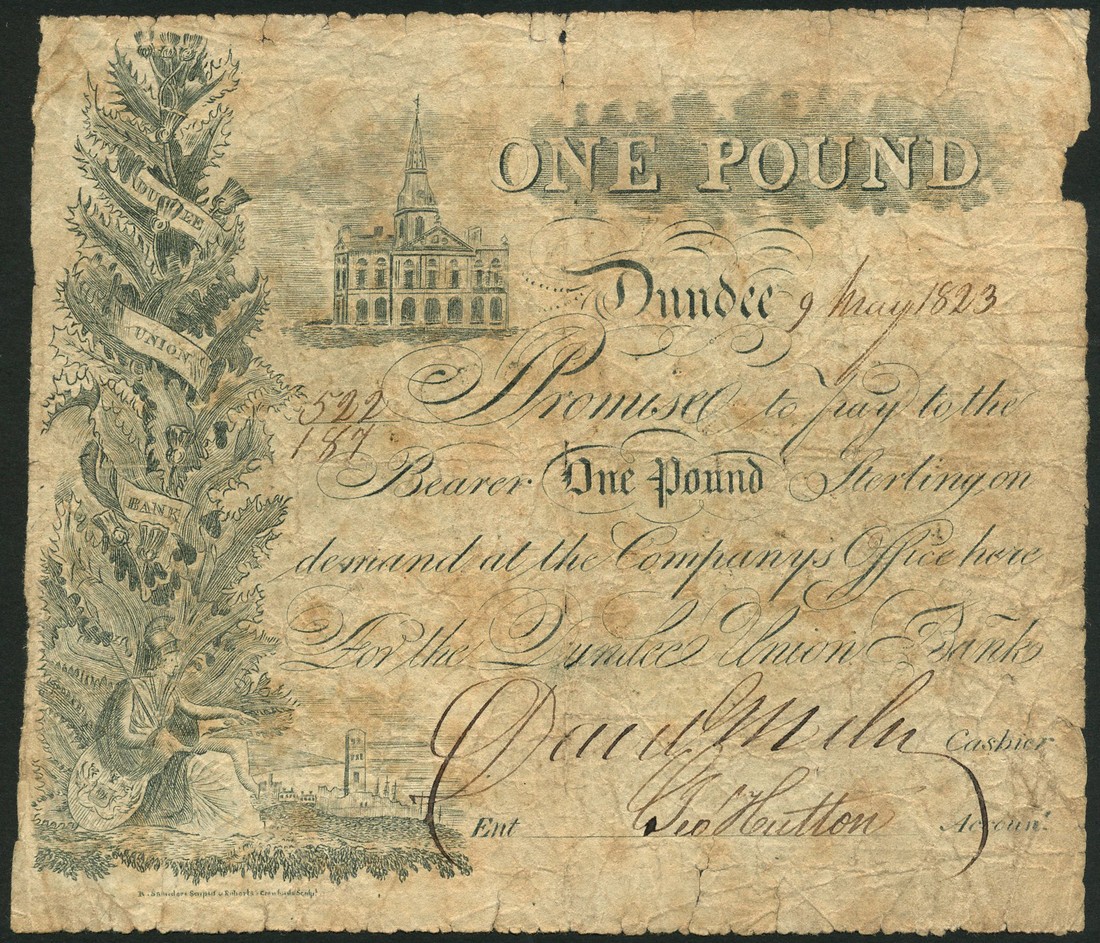 ONE POUND
DUNDEE
UNION
BANK
Dundee 9 May 1823
522
187
I Promise to pay to the
Bearer One Pound Sterling on
demand at the Companys Office here
For the Dundee Union Bank
David Miln Cashier
Ent Geo Hutton Accoun.t